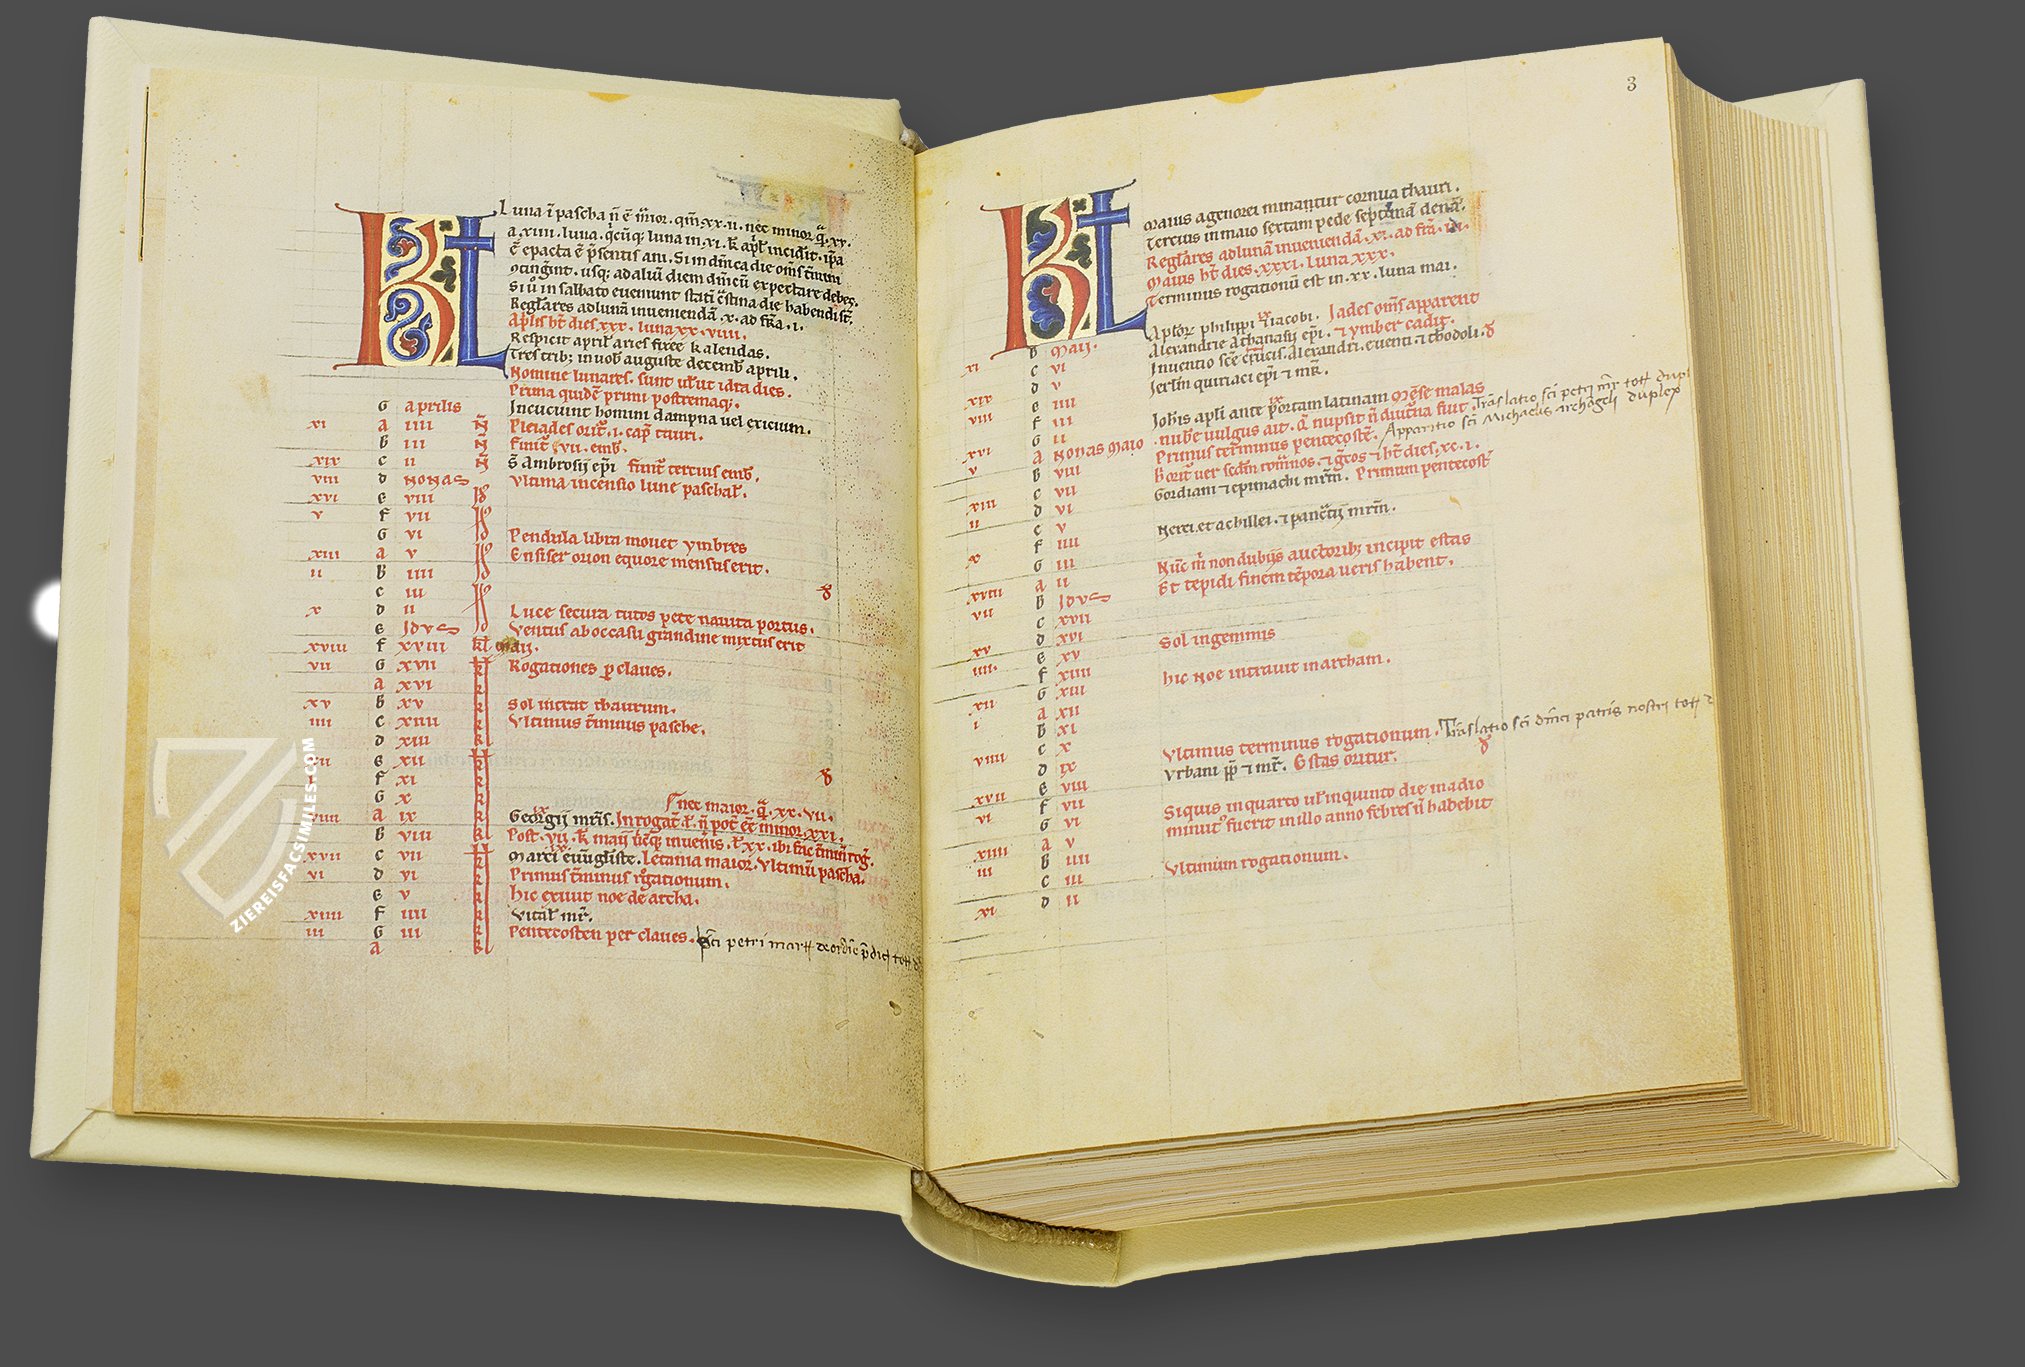 KL
Luna ī pascha n̄ ē maior. qm̄. xx. ii. nec minor q̄. xv.
a. xiiii. luna. q̄cūq; luna in. xi. k̄. apl̄ incidit. ip̄a
ē epacta ē p̄sentis ani. Si in dnīca die oms̄ t̄mini
ꝯtingīnt. usq; ad aliū diem dnīcū expectare debes.
Si ū in sabbato eueniunt statī c̄stina die habendi st̄.
Regl̄ares ad lunā inueniendā. x. ad fr̄ā. i.
Apl̄is ht̄ dies. xxx. luna xx. viiii.
Respicit april̄ aries frixee kalendas.
Tres trib; in uob̄ auguste decemb̄ aprili.
Nomine lunares. sunt ul̄ut idra dies.
Prima quidē primi postremaq;.
G aprilis Incucuint homini dampna uel exicium.
xi a iiii N̄ Pleiades orit̄. i. cap̄ tauri.
B iii N̄ Finit̄ vii. emb̄.
xix c ii N̄ S̄ Ambrosij ep̄i Finit̄ tercius emb̄.
viii d NONAS Vltima incensio lune paschal̄.
xvi e viii Id
v f vii Id
G vi Id Pendula libra mouet ymbres
xiii a v Id Ensifer orion equore mensus erit.
ii B iiii Id
c iii Id
x d ii Id Luce secura tutos pete nauita portus.
e IDVS Ventus ab occasu grandine mixtus erit
xviii f xviii kl maij.
vii G xvii kl Rogationes p claues.
a xvi kl
xv B xv kl Sol intrat thaurum.
iiii c xiiii kl Vltimus t̄minus pasche.
d xiii kl
xii e xii kl
f xi kl
G x kl nec maior. q̄. xx. vii.
viiii a ix kl Georgij mr̄is. In rogat̄. ł. n̄ pot̄ ēē minor xxi.
B viii kl Post. vii. k̄ maij ubicq; inuenis. ł. xx. ibi fac t̄minū rog̃.
xvii c vii kl Marci euuḡliste. Letania maior. Vltimū pascha.
vi d vi kl Primus t̄minus rogationum.
e v kl hic exiuit noe de archa.
xiiii f iiii kl Vital̄ mr̄.
iii G iii kl Pentecosten per claues. Sci petri mart de ordīe p̄dic̄ tot̄
a kl
ZIEREISFACSIMILES.COM
3
KL
Maius agenorei minantur cornua thauri.
Tercius in maio sextam pede septimā denā.
Regl̄ares ad lunā inueniendā. xi. ad fr̄ā. iii.
Maius ht̄ dies. xxxi. luna xxx.
Terminus rogationū est in. xx. luna mai.
B Maij. Aptōr philippi ⁊ iacobi. Iades oms̄ apparent
xi c vi Alexandrie Athanasij ep̄i. ⁊ ymber cadit.
d v Inuentio scē crucis. Alexandri. euenti ⁊ thodoli.
xix e iiii Ierl̄m quiriaci ep̄i ⁊ mr̄.
viii f iii
G ii Ioh̄is apl̄i ante portam latinam Mēse malas
xvi a NONAS MAIO nube uulgus ait. Q̄ nupsit n̄ diut̄na fuit. Trāslatio sci petri mr̄ tot̄ dupl
v B viii Primus terminus pentecostē. Apparitio sci Michaelis archāgeli duplex
c vii Borit̄ uer scdm̄ romāos. ⁊ grecos ⁊ ht̄ dies. xc. i.
xiii d vi Gordiani ⁊ epimachi mr̄m̄. Primum pentecost̄
ii e v
x f iiii Nerei. et achillei. ⁊ pancratij mrīm̄.
G iii
xviii a ii Nūc m̄ non dubijs auctorib; incipit estas
vii B IDVS Et tepidi finem tēpora ueris habent.
c xvii
d xvi Sol in geminis
xv e xv
iiii f xiiii hic Noe intrauit in archam.
G xiii
xii a xii
i B xi
c x Vltimus terminus rogationum. Trāslatio sci dnīci patris nostri tot̄
viiii d ix Vrbani pp̄ ⁊ mr̄. Estas oritur.
e viii
xvii f vii Siquis in quarto ul̄ in quinto die madio
vi G vi minut̕ fuerit in illo anno febres n̄ habebit
a v
xiiii B iiii Vltimum rogationum.
iii c iii
xi d ii